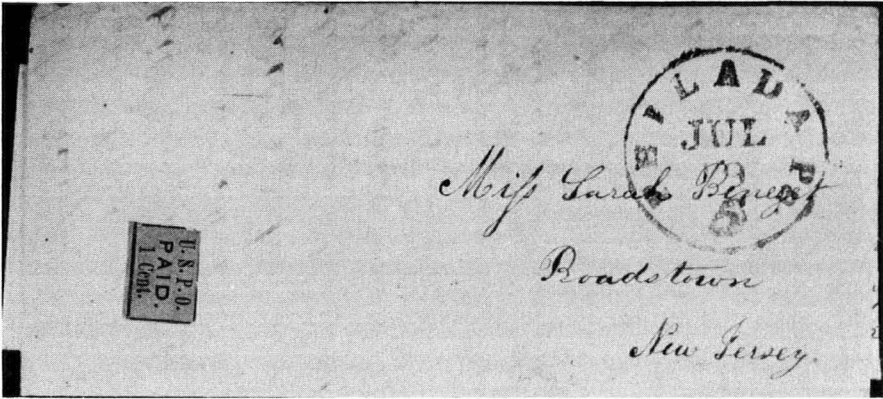 PHILADA PS
JUL
5
Miss Sarah
Roadstown
New Jersey.
U.S.P.O.
PAID.
1 Cent.